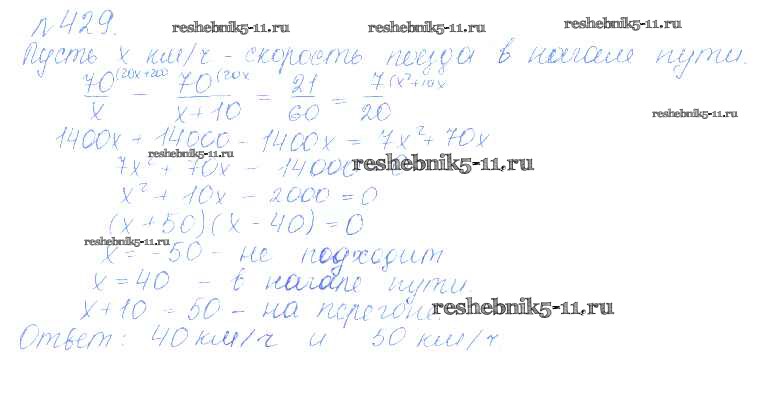 №429. reshebnik5-11.ru reshebnik5-11.ru reshebnik5-11.ru
Пусть x км/ч - скорость поезда в начале пути.
70(20x+200 / x - 70(20x / x+10 = 21/60 = 7(x²+10x / 20
reshebnik5-11.ru
1400x + 14000 - 1400x = 7x² + 70x
reshebnik5-11.ru
7x² + 70x - 14000 reshebnik5-11.ru
x² + 10x - 2000 = 0
(x + 50)(x - 40) = 0
reshebnik5-11.ru
x = -50 - не подходит
x = 40 - в начале пути.
x + 10 = 50 - на перегоне reshebnik5-11.ru
Ответ: 40 км/ч и 50 км/ч